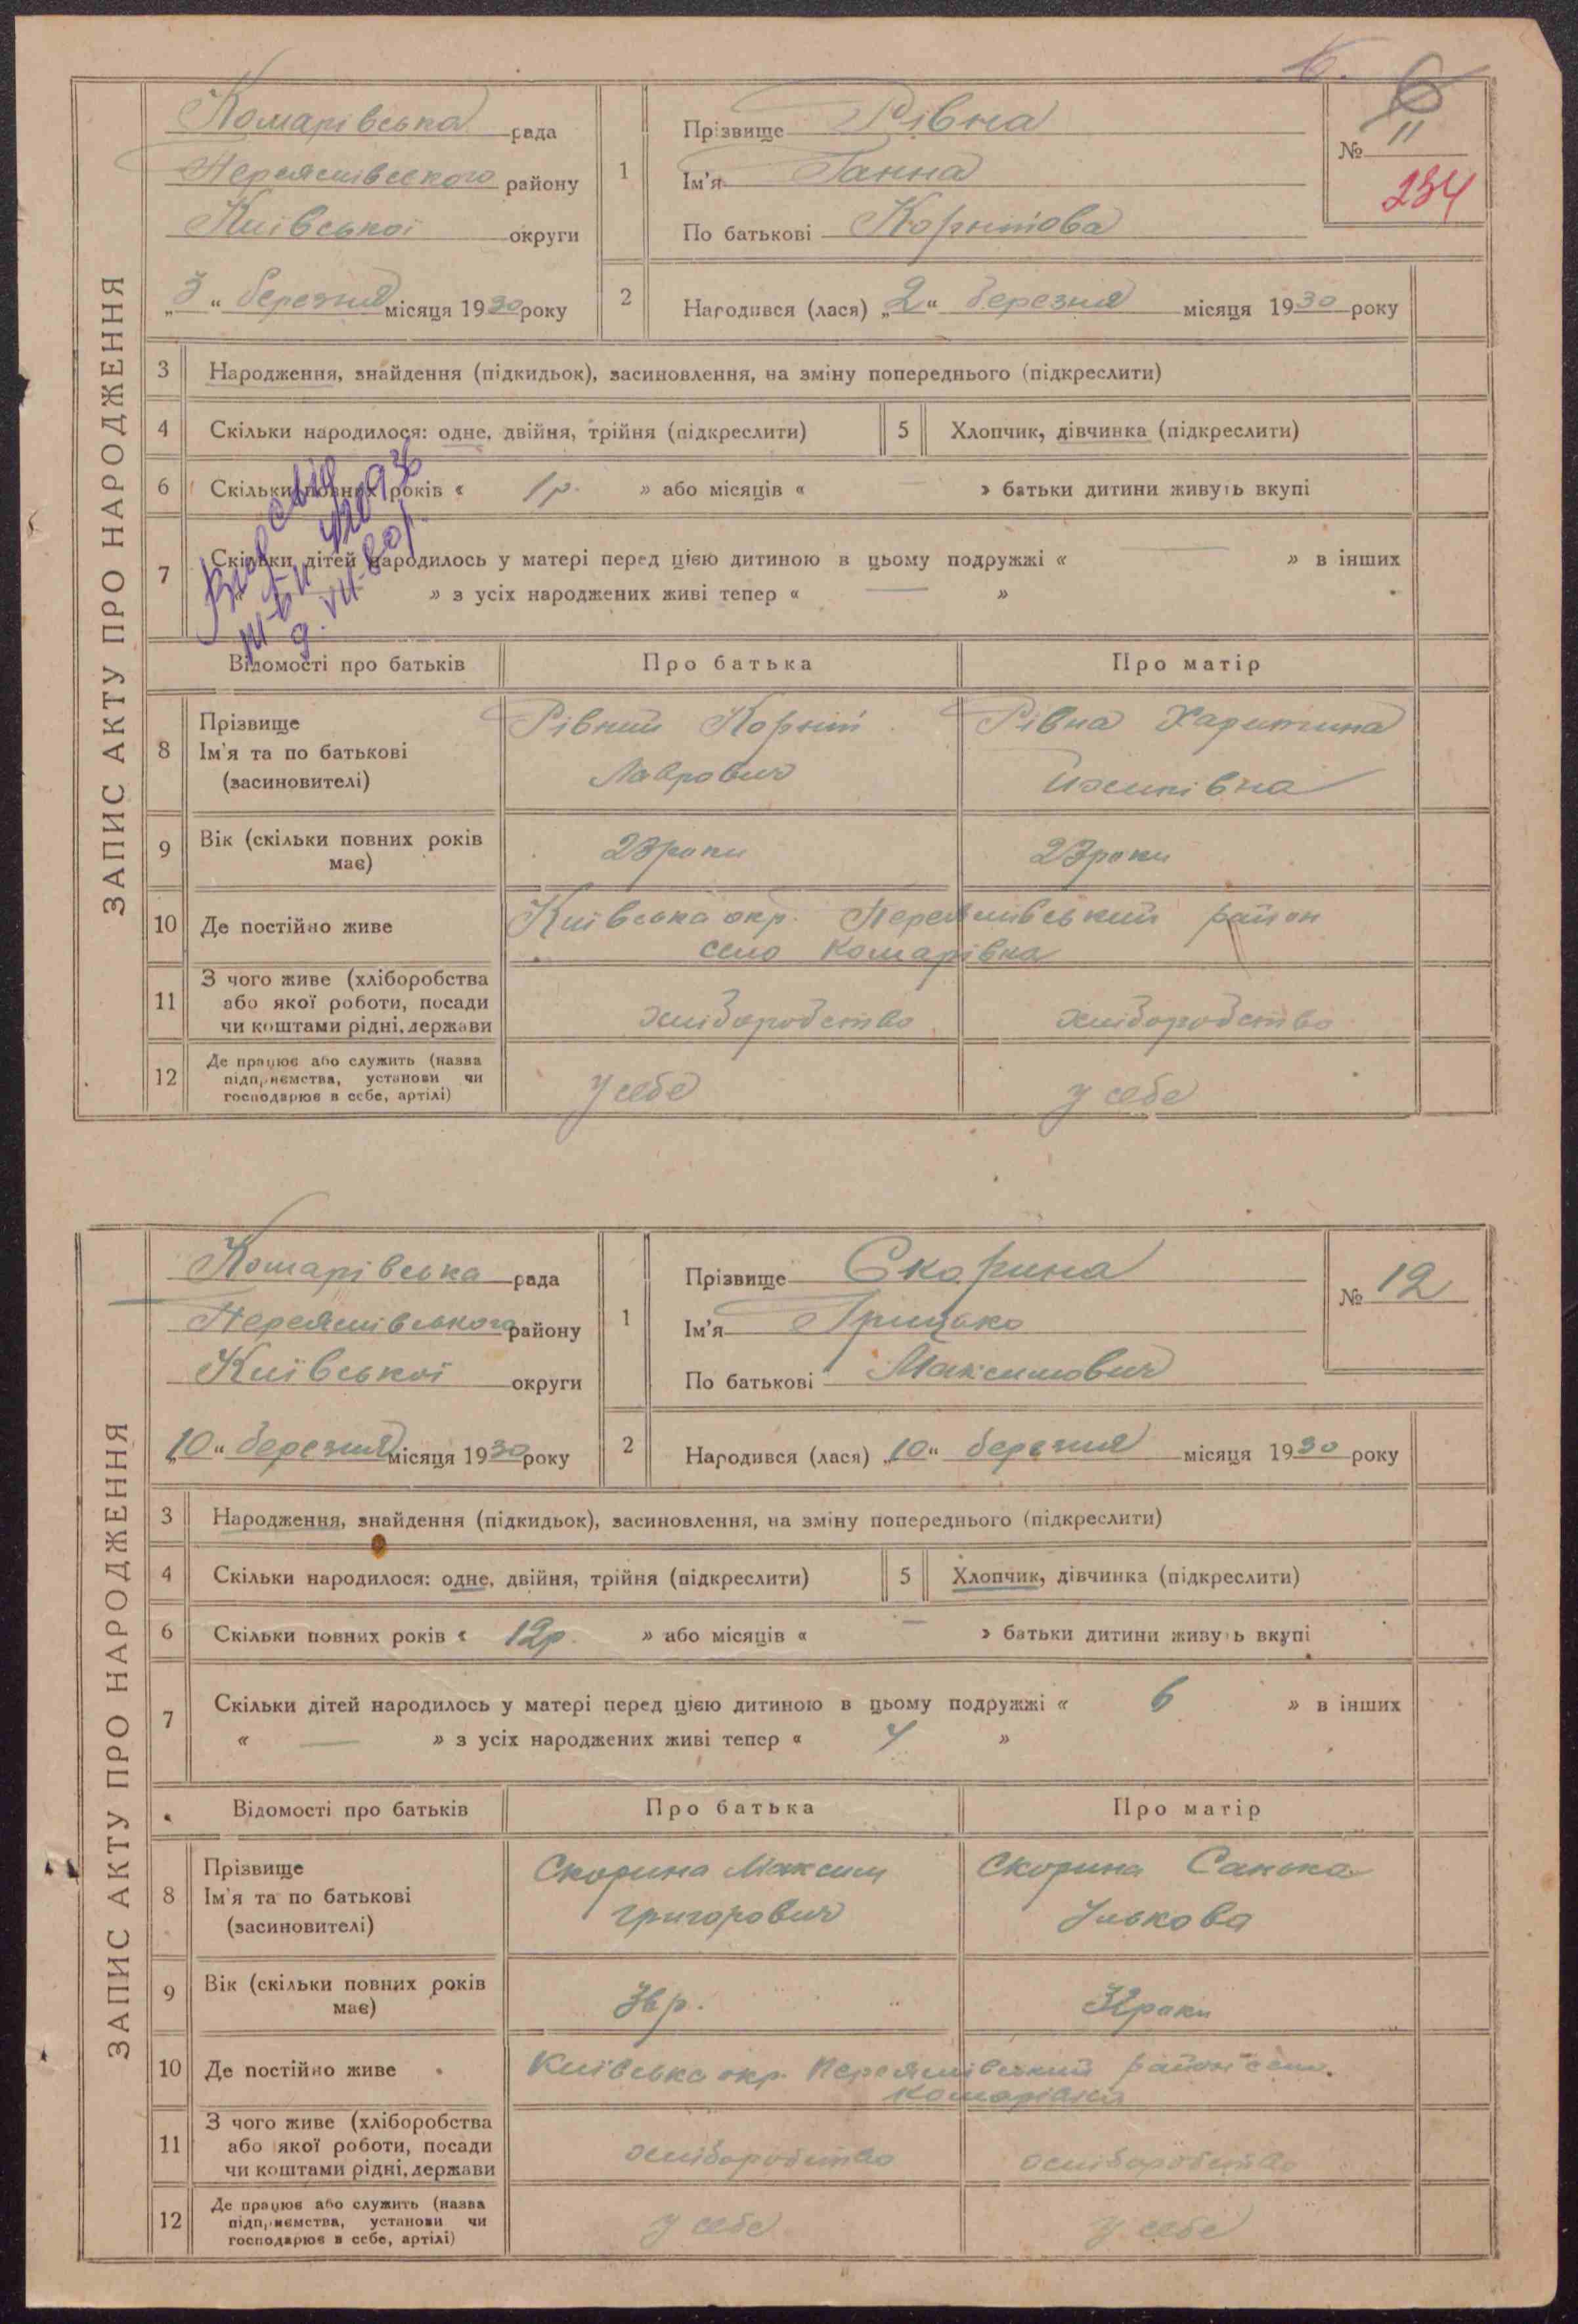 ЗАПИС АКТУ ПРО НАРОДЖЕННЯ
Комарівська рада
Переяслівського району
Київської округи
„3“ березня місяця 1930 року
1 Прізвище Рівна
Ім'я Ганна
По батькові Корнитова
№ 11
234
2 Народився (лася) „2“ березня місяця 1930 року
3 Народження, знайдення (підкидьок), засиновлення, на зміну попереднього (підкреслити)
4 Скільки народилося: одне, двійня, трійня (підкреслити) 5 Хлопчик, дівчинка (підкреслити)
6 Скільки повних років « 1р. » або місяців « — » батьки дитини живуть вкупі
7 Скільки дітей народилось у матері перед цією дитиною в цьому подружжі « — » в інших
» з усіх народжених живі тепер « — »
Відомості про батьків Про батька Про матір
8 Прізвище Ім'я та по батькові (засиновителі)
Рівний Корній Лаврович
Рівна Харитина
9 Вік (скільки повних років має) 23 роки 23 роки
10 Де постійно живе Київська окр. Переяслівський район
село Комарівка
11 З чого живе (хліборобства або якої роботи, посади чи коштами рідні, держави хліборобство хліборобство
12 Де працює або служить (назва підприємства, установи чи господарює в себе, артілі) у себе у себе
ЗАПИС АКТУ ПРО НАРОДЖЕННЯ
Комарівська рада
Переяслівського району
Київської округи
„10“ березня місяця 1930 року
1 Прізвище Скорина
Ім'я Грицько
По батькові Максимович
№ 12
2 Народився (лася) „10“ березня місяця 1930 року
3 Народження, знайдення (підкидьок), засиновлення, на зміну попереднього (підкреслити)
4 Скільки народилося: одне, двійня, трійня (підкреслити) 5 Хлопчик, дівчинка (підкреслити)
6 Скільки повних років « 12р. » або місяців « — » батьки дитини живуть вкупі
7 Скільки дітей народилось у матері перед цією дитиною в цьому подружжі « 6 » в інших
« — » з усіх народжених живі тепер « 4 »
Відомості про батьків Про батька Про матір
8 Прізвище Ім'я та по батькові (засиновителі)
Скорина Максим Григорович
Скорина Санька Улькова
9 Вік (скільки повних років має) 36р. роки
10 Де постійно живе Київська окр. Переяслівський район село
Комарівка
11 З чого живе (хліборобства або якої роботи, посади чи коштами рідні, держави хліборобство хліборобство
12 Де працює або служить (назва підприємства, установи чи господарює в себе, артілі) у себе у себе